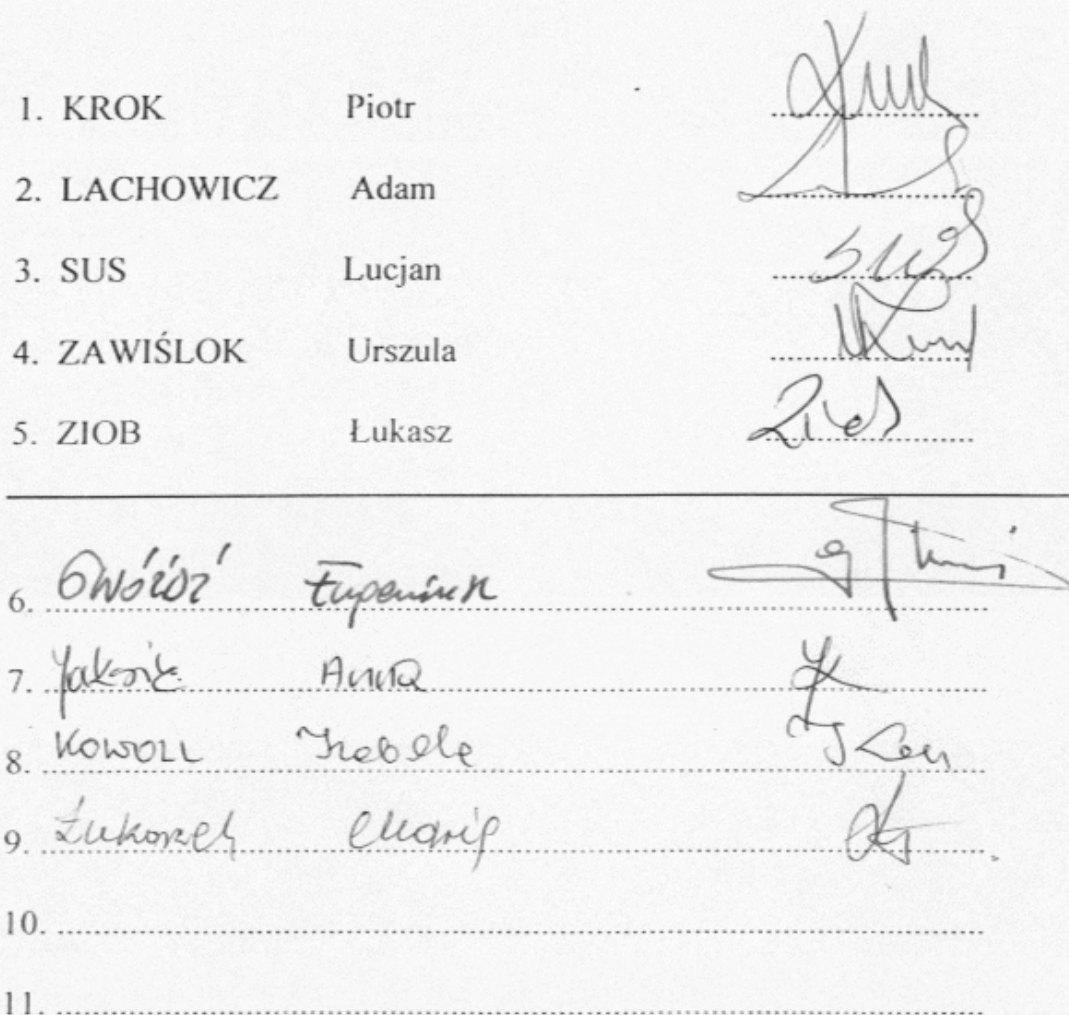 1. KROK Piotr
2. LACHOWICZ Adam
3. SUS Lucjan sus
4. ZAWIŚLOK Urszula
5. ZIOB Łukasz
6. Gwóźdź Eugeniusz
7. Anna
8. KOWOLL Izabela
9. Maria
10.
11.